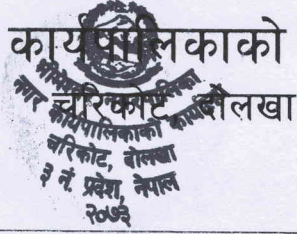 कार्यपालिकाको
चरिकोट, दोलखा
नगर कार्यपालिकाको कार्यालय
चरिकोट, दोलखा
३ नं. प्रदेश, नेपाल
२०७३